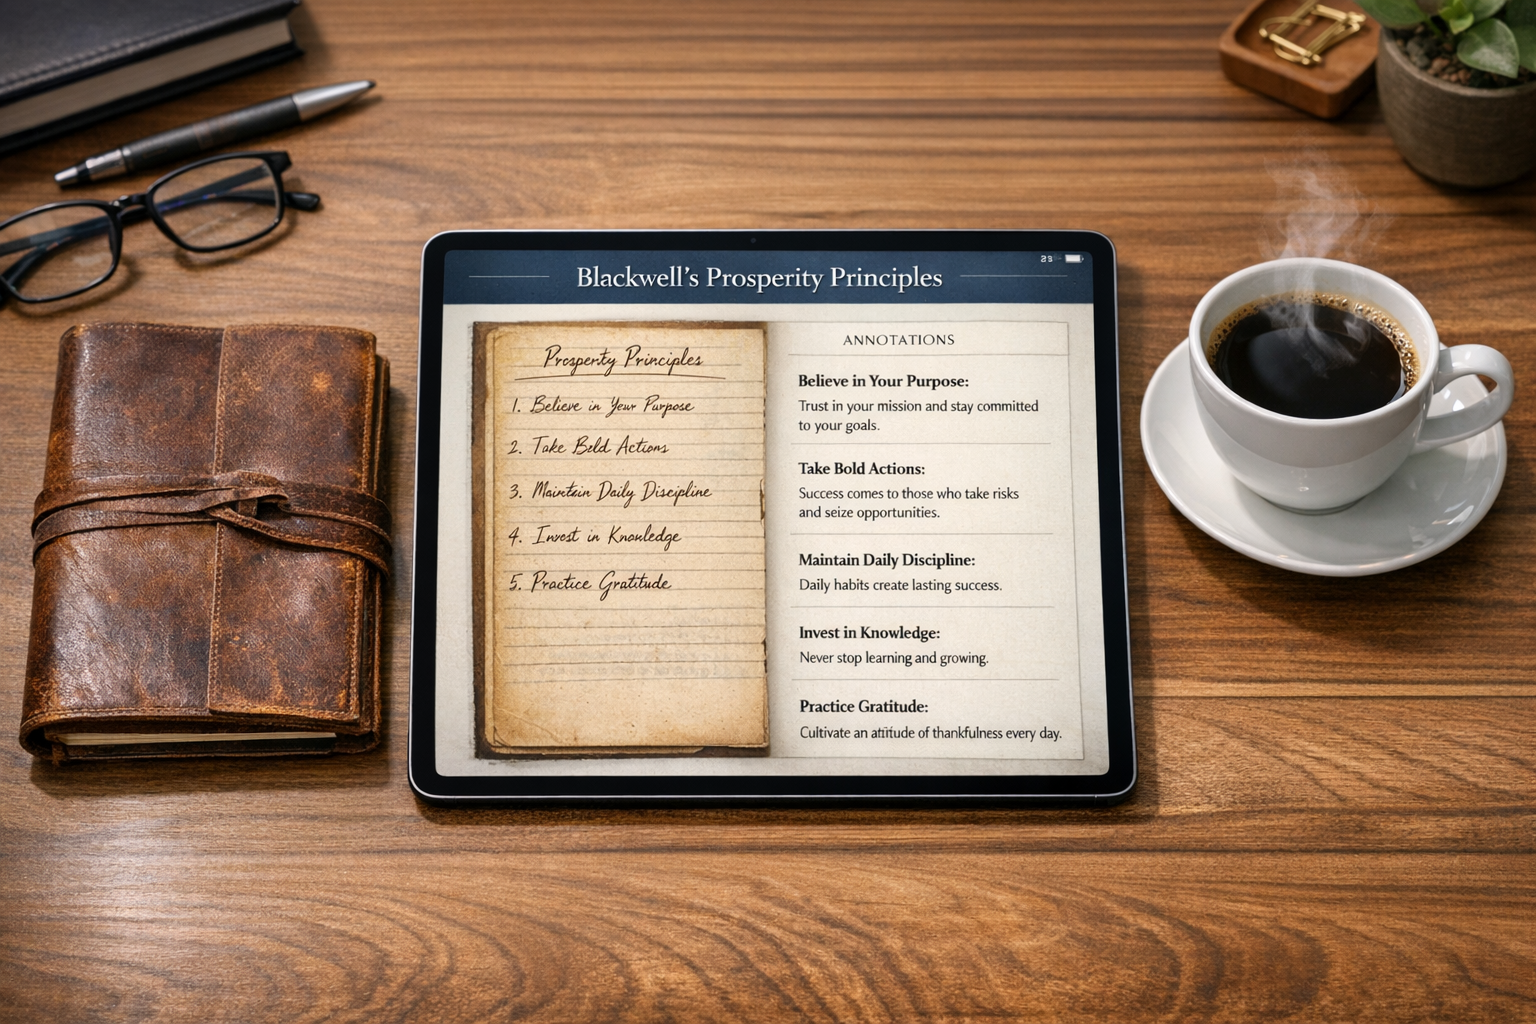 Blackwell's Prosperity Principles
Prosperity Principles
1. Believe in Your Purpose
2. Take Bold Actions
3. Maintain Daily Discipline
4. Invest in Knowledge
5. Practice Gratitude
ANNOTATIONS
Believe in Your Purpose:
Trust in your mission and stay committed
to your goals.
Take Bold Actions:
Success comes to those who take risks
and seize opportunities.
Maintain Daily Discipline:
Daily habits create lasting success.
Invest in Knowledge:
Never stop learning and growing.
Practice Gratitude:
Cultivate an attitude of thankfulness every day.